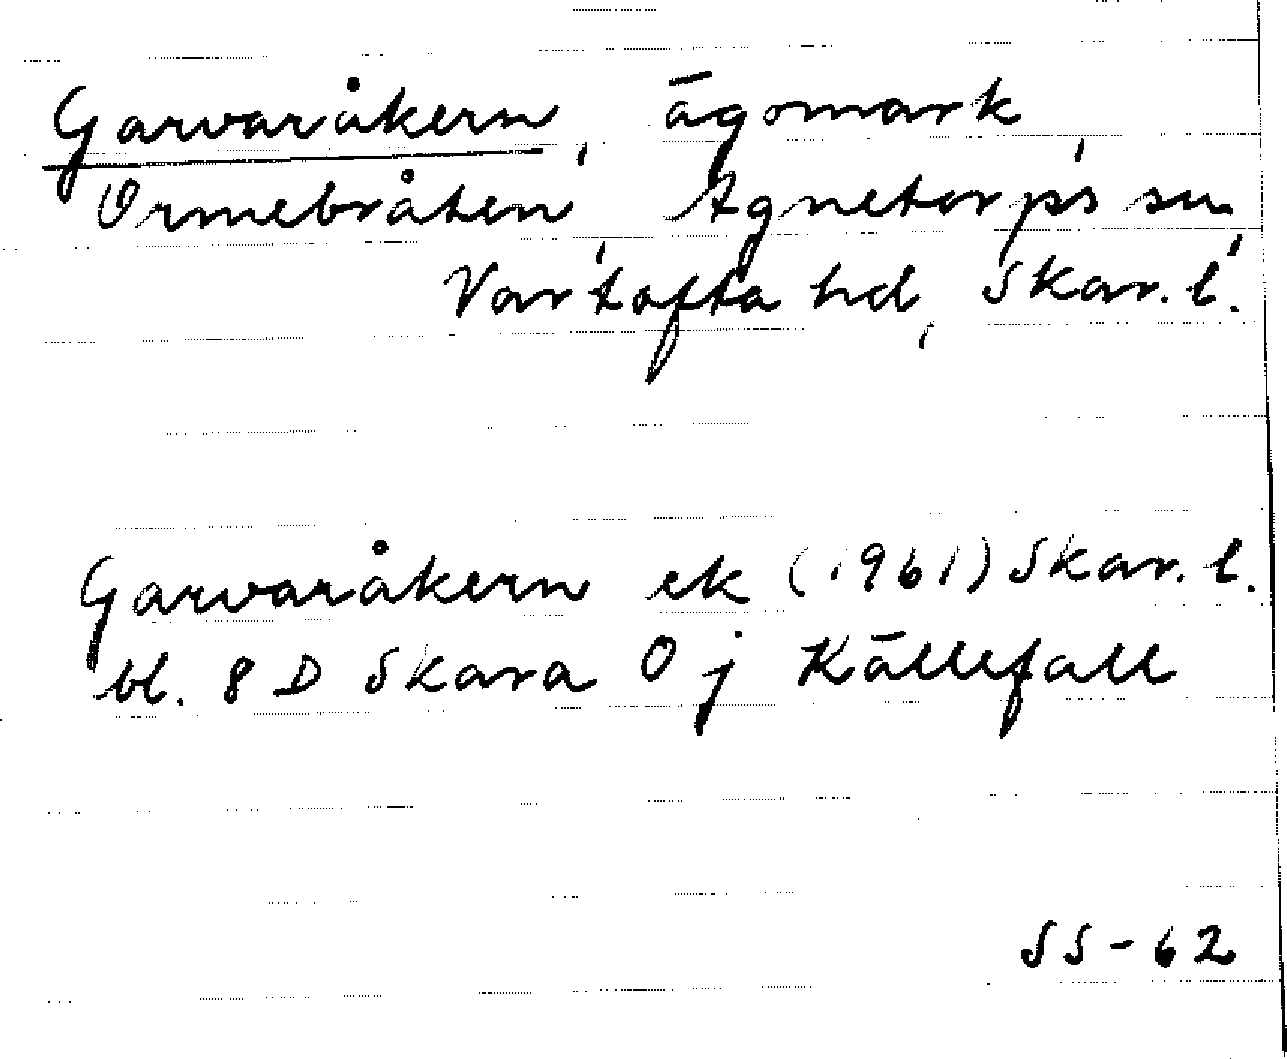 Garvaråkern, ägomark
Ormebråten, Agnetorps sn,
Vartofta hd, Skar. l.
Garvaråkern ek (1961) Skar. l.
bl. 8 D Skara 0 j Källefall
SS-62